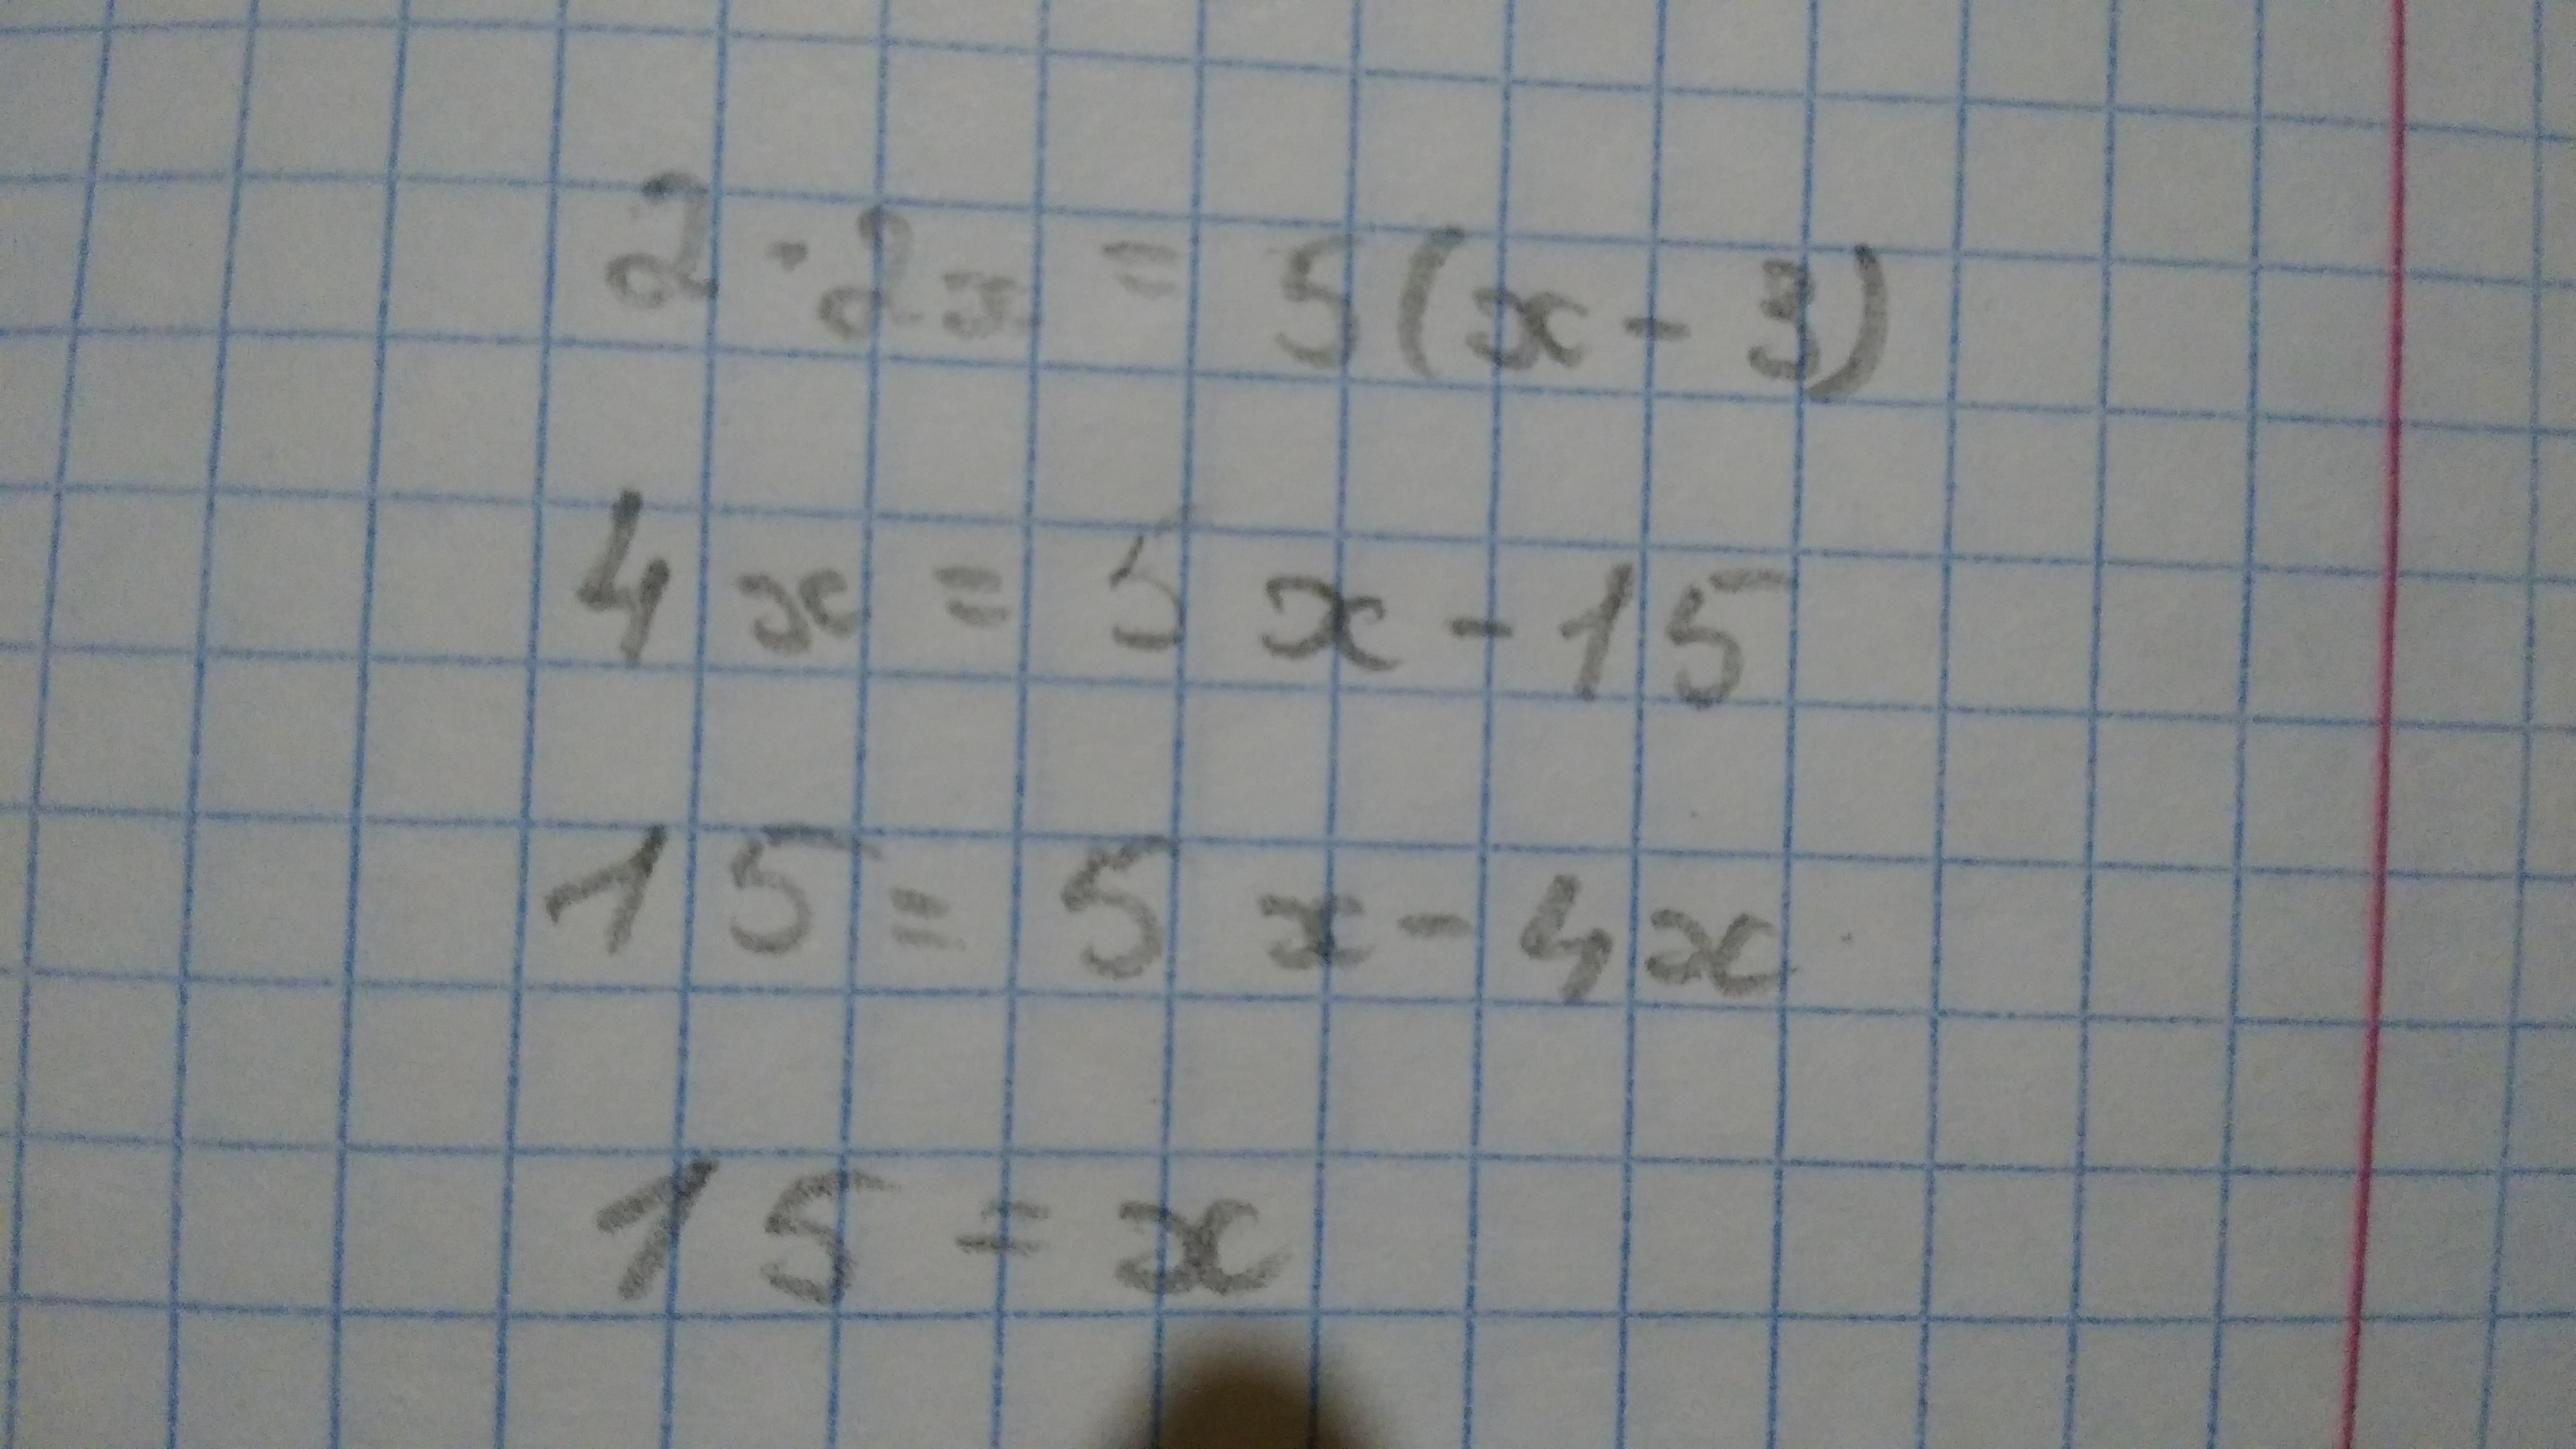 2·2x = 5(x - 3)
4x = 5x - 15
15 = 5x - 4x
15 = x